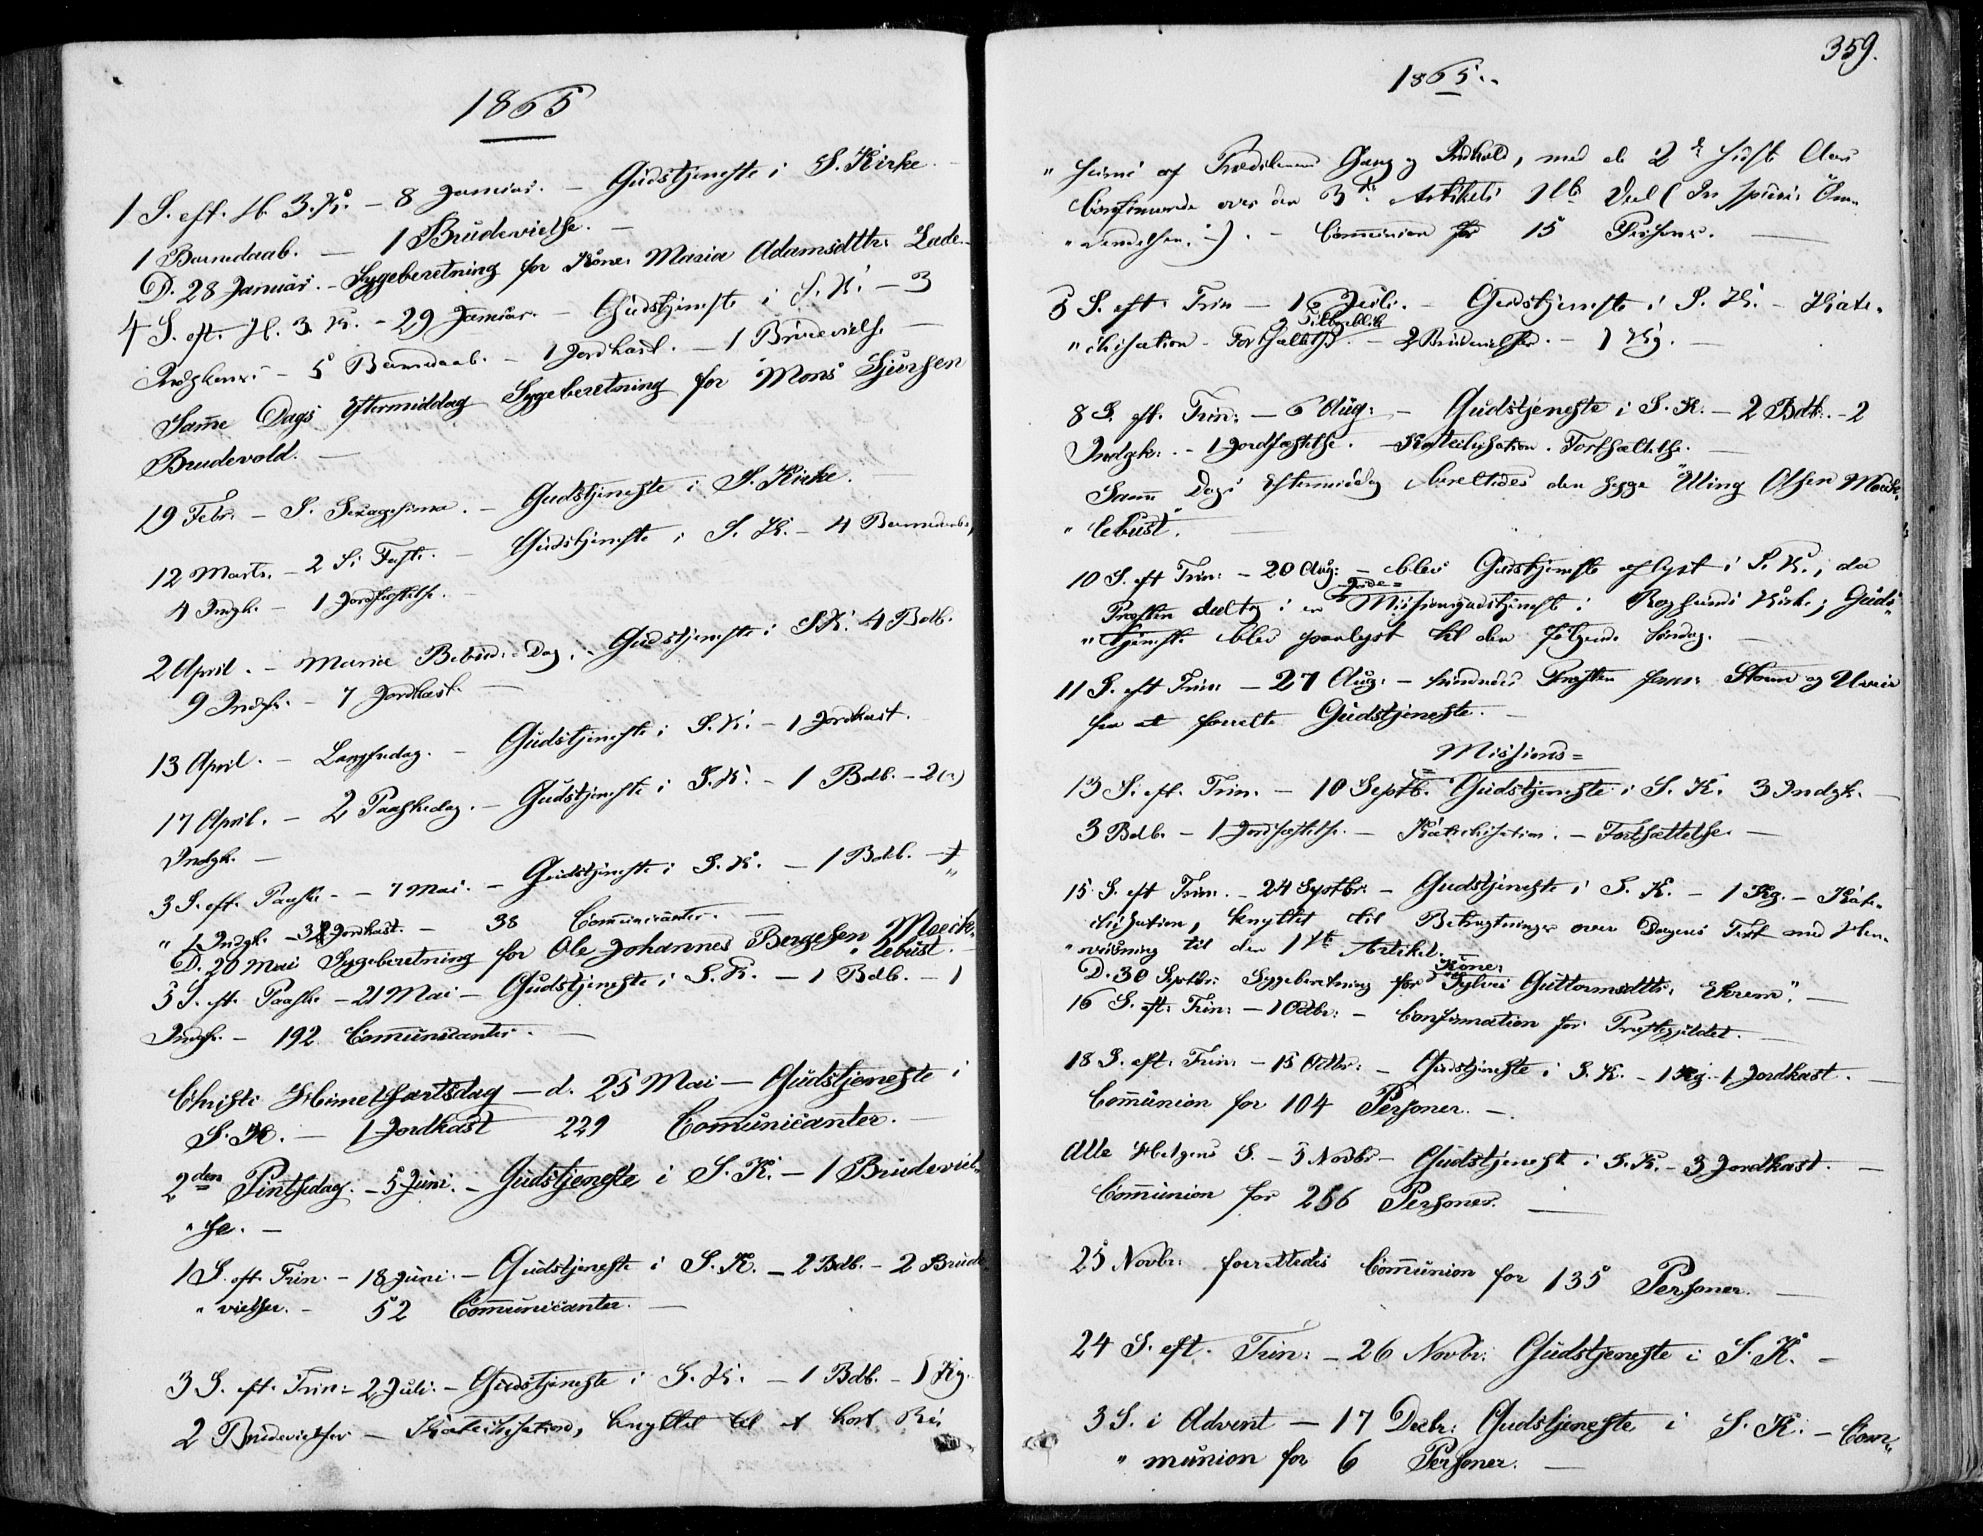 1865
1 S. eft. H. 3. K. - 8 Januar. - Gudstjeneste i S. Kirke. -
1 Barnedaab. - 1 Brudevielse. -
D. 28 Januar. - Sygeberetning for Kone: Maria Adamsdttr: Lade.
4 S. eft. H. 3. K. - 29 Januar. - Gudstjeneste i S. K. - 3
Indgkoner - 5 Barnedaab. - 1 Jordkast. - 1 Brudevielse -
Samme Dags Eftermiddag Sygeberetning for Mons Sjursen
Brudevold. -
19 Febr. - S. Sexagesima. - Gudstjeneste i S. Kirke.
12 Marts. - 2 S. i Faste. - Gudstjeneste i S. K. - 4 Barnedaab,
4 Indgk. - 1 Jordfæstelse. -
2 April. - Mariæ Bebud. Dag. - Gudstjeneste i S.K. 4 Bdb.
9 Indgk. - 7 Jordkast. -
13 April. - Langfredag. - Gudstjeneste i S. K. - 1 Jordkast.
17 April. - 2 Paaskedag. - Gudstjeneste i S. K. - 1 Bdb. - 2
Indgk. -
3 S. eft. Paaske - 7 Mai. - Gudstjeneste i S. K. - 1 Bdb. -
" 1 Indgk. - 3 Jordkast. - 38 Communicanter. -
D. 20 Mai Sygeberetning for Ole Johannes Bergesen Mæck,
" lebust. -
5 S. eft. Paaske - 21 Mai - Gudstjeneste i S. K. - 1 Bdb. - 1
Indgk. - 192 Communicanter. -
Christi Himelfartsdag - d. 25 Mai - Gudstjeneste i
S. K. - 1 Jordkast 229 Communicanter. -
2den Pintsedag. - 5 Juni. - Gudstjeneste i S. K. - 1 Brudeviel,
" se. -
1 S. eft. Trin. - 18 Juni. - Gudstjeneste i S. K. - 2 Bdb. - 2 Brude
" vielser. - 52 Communicanter. -
3 S. eft. Trin - 2 Juli. - Gudstjeneste i S. K. - 1 Bdb. - 1 Kg.
2 Brudevielser - Katechisation, knyttet til et kort Re,
359.
1865. -
" sume af Prædikenens Gang og Indhold, med de 2de sidste Aars
Confirmerede over den 3die Artikels 1ste Deel
" vendelsen. -). - Communion for 15 Personer. -
5 S. eft. Trin - 16 Juli. - Gudstjeneste i S. K. Kate,
Tilbageblik
" chisation - Fortsættelse. - 2 Brudevielser. - 1 Kg. -
8 S. eft. Trin: - 6 Aug: - Gudstjeneste i S. K. - 2 Bdb. - 2
Indgk: - 1 Jordfæstelse. - Katechisation. Fortsættelse. -
Samme Dags Eftermiddag berettedes den syge Elling Olsen Mæck,
" lebust. -
10 S. eft Trin: - 20 Aug: - blev Gudstjeneste aflyst i S. K., da
Præsten deeltog i en Missionsgudstjeneste i Borgsund Kirke; Guds
" tjeneste blev paalyst til den følgende Søndag. -
11 S. eft Trin: - 27 Aug: - hindredes Præsten formed: Storm og Uveir
fra at forrette Gudstjeneste. -
Missions=
13 S. eft. Trin. - 10 Septb. Gudstjeneste i S. K. 3 Indgk. -
3 Bdb. - 1 Jordfæstelse. - Katechisation. - Fortsættelse. -
15 S. eft Trin. - 24 Septbr. - Gudstjeneste i S. K. - 1 Kg. - Kate,
chisation, knyttet til Betragtninger over Dagens Text med Hen,
" viisning til den 1ste Artikel. -
Kone:
D. 30 Septbr: Sygeberetning for Sylvei Guttormsdttr: Ekrem. -
16 S. eft. Trin: - 1 Octbr: - Confirmation for Præstegjeldet. -
18 S. eft. Trin: - 15 Octbr: - Gudstjeneste i S. K. - 1 Kg. - 1 Jordkast. -
Communion for 104 Personer. -
Alle Helgens S. - 5 Novbr - Gudstjeneste i S. K. - 3 Jordkast. -
Communion for 256 Personer. -
25 Novbr: forrettedes Communion for 135 Personer. -
24 S. eft. Trin: - 26 Novbr: Gudstjeneste i S. K. -
3 S. i Advent - 17 Decbr: Gudstjeneste i S. K. - Com,
" munion for 6 Personer. -